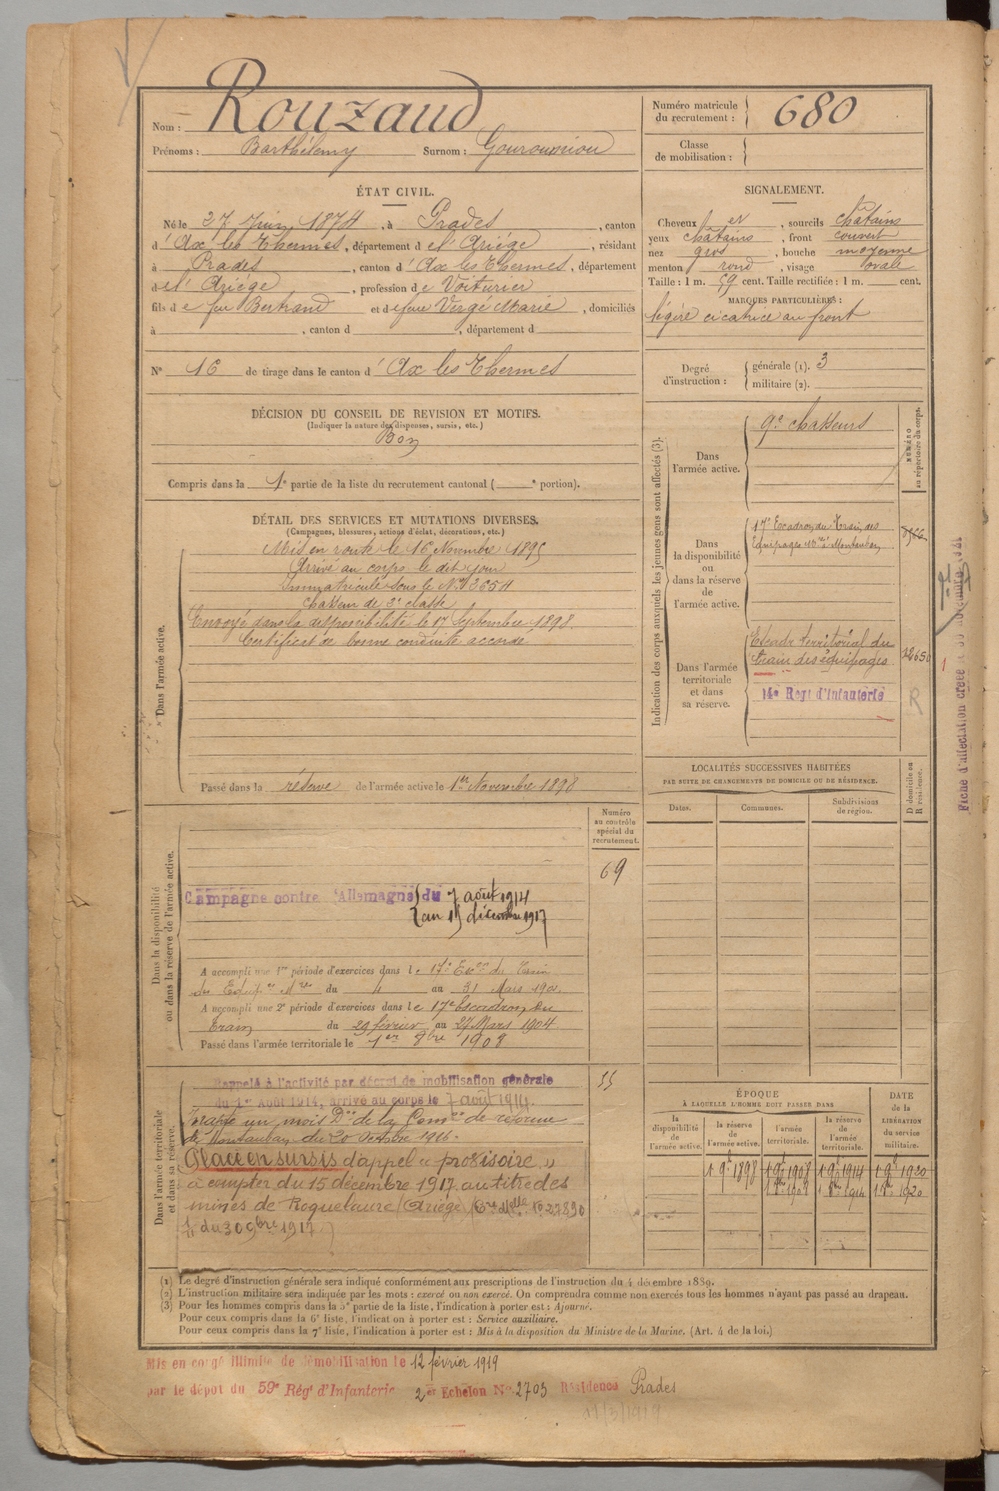 Nom : Rouzaud
Prénoms : Barthélemy Surnom :
Numéro matricule du recrutement : 680
Classe de mobilisation :
ÉTAT CIVIL.
Né le 27 Juin 1874, à Prades, canton
d'Ax les Thermes, département de l'Ariége, résidant
à Prades, canton d'Ax les Thermes, département
de l'Ariége, profession de Voiturier
fils de feu Bertrand et de feue Vergé Marie, domiciliés
à , canton d , département d
N° 16 de tirage dans le canton d'Ax les Thermes
SIGNALEMENT.
Cheveux et , sourcils châtains
yeux châtains , front couvert
nez gros , bouche moyenne
menton rond , visage ovale
Taille : 1 m. 59 cent. Taille rectifiée : 1 m. cent.
MARQUES PARTICULIÈRES :
légère cicatrice au front
Degré d'instruction : générale (1). 3
militaire (2).
DÉCISION DU CONSEIL DE REVISION ET MOTIFS.
(Indiquer la nature des dispenses, sursis, etc.)
Bon
Compris dans la 1e partie de la liste du recrutement cantonal ( e portion).
DÉTAIL DES SERVICES ET MUTATIONS DIVERSES.
(Campagnes, blessures, actions d'éclat, décorations, etc.)
Dans l'armée active.
Mis en route le 16 Novembre 1895
Arrivé au corps le dit jour
Immatriculé sous le N° 3654
Chasseur de 2e classe
Envoyé dans la disponibilité le 17 Septembre 1898.
Certificat de bonne conduite accordé
Passé dans la réserve de l'armée active le 1er Novembre 1898
Indication des corps auxquels les jeunes gens sont affectés (3).
NUMÉRO au répertoire du corps.
Dans l'armée active.
9e chasseurs
Dans la disponibilité ou dans la réserve de l'armée active.
17e Escadron du Train des
Equipages Mres à Montauban
Dans l'armée territoriale et dans sa réserve.
Escadr territorial du
train des équipages
14e Regt d'Infanterie
R
LOCALITÉS SUCCESSIVES HABITÉES
PAR SUITE DE CHANGEMENTS DE DOMICILE OU DE RÉSIDENCE.
Dates. Communes. Subdivisions de région. D domicile ou R résidence.
Dans la disponibilité ou dans la réserve de l'armée active.
Numéro au contrôle spécial du recrutement.
69
Campagne contre l'Allemagne du 7 août 1914
au 15 décembre 1917
A accompli une 1re période d'exercices dans le 17e Escon du Train
des Equipes Mres du 4 au 31 Mars 190
A accompli une 2e période d'exercices dans le 17e Escadron du
Train du 29 février au 27 Mars 1904
Passé dans l'armée territoriale le 1er 8bre 1908
Dans l'armée territoriale et dans sa réserve.
Rappelé à l'activité par décret de mobilisation générale
du 1er Août 1914, arrivé au corps le 7 août 1914.
55
un mois Don de la Comon de réforme
de Montauban du 20 Octobre 1916.
Placé en sursis d'appel « provisoire »
à compter du 15 décembre 1917 au titre des
mines de Roquelaure (Ariége) No 27890
du 30 9bre 1917
ÉPOQUE
À LAQUELLE L'HOMME DOIT PASSER DANS
la disponibilité de l'armée active. la réserve de l'armée active. l'armée territoriale. la réserve de l'armée territoriale. DATE de la LIBÉRATION du service militaire.
1 9b 1898 1 9b 1908 1 9b 1914 1 9b 1920
1 8bre 1908 1 8bre 1914 1 8bre 1920
(1) Le degré d'instruction générale sera indiqué conformément aux prescriptions de l'instruction du 4 décembre 1889.
(2) L'instruction militaire sera indiquée par les mots : exercé ou non exercé. On comprendra comme non exercés tous les hommes n'ayant pas passé au drapeau.
(3) Pour les hommes compris dans la 5e partie de la liste, l'indication à porter est : Ajourné.
Pour ceux compris dans la 6e liste, l'indication à porter est : Service auxiliaire.
Pour ceux compris dans la 7e liste, l'indication à porter est : Mis à la disposition du Ministre de la Marine. (Art. 4 de la loi.)
Mis en congé illimité de démobilisation le 12 février 1919
par le dépôt du 59e Régt d'Infanterie 2er Echelon No 2703 Résidence Prades
11/3/1919
Fiche d'affectation créée le